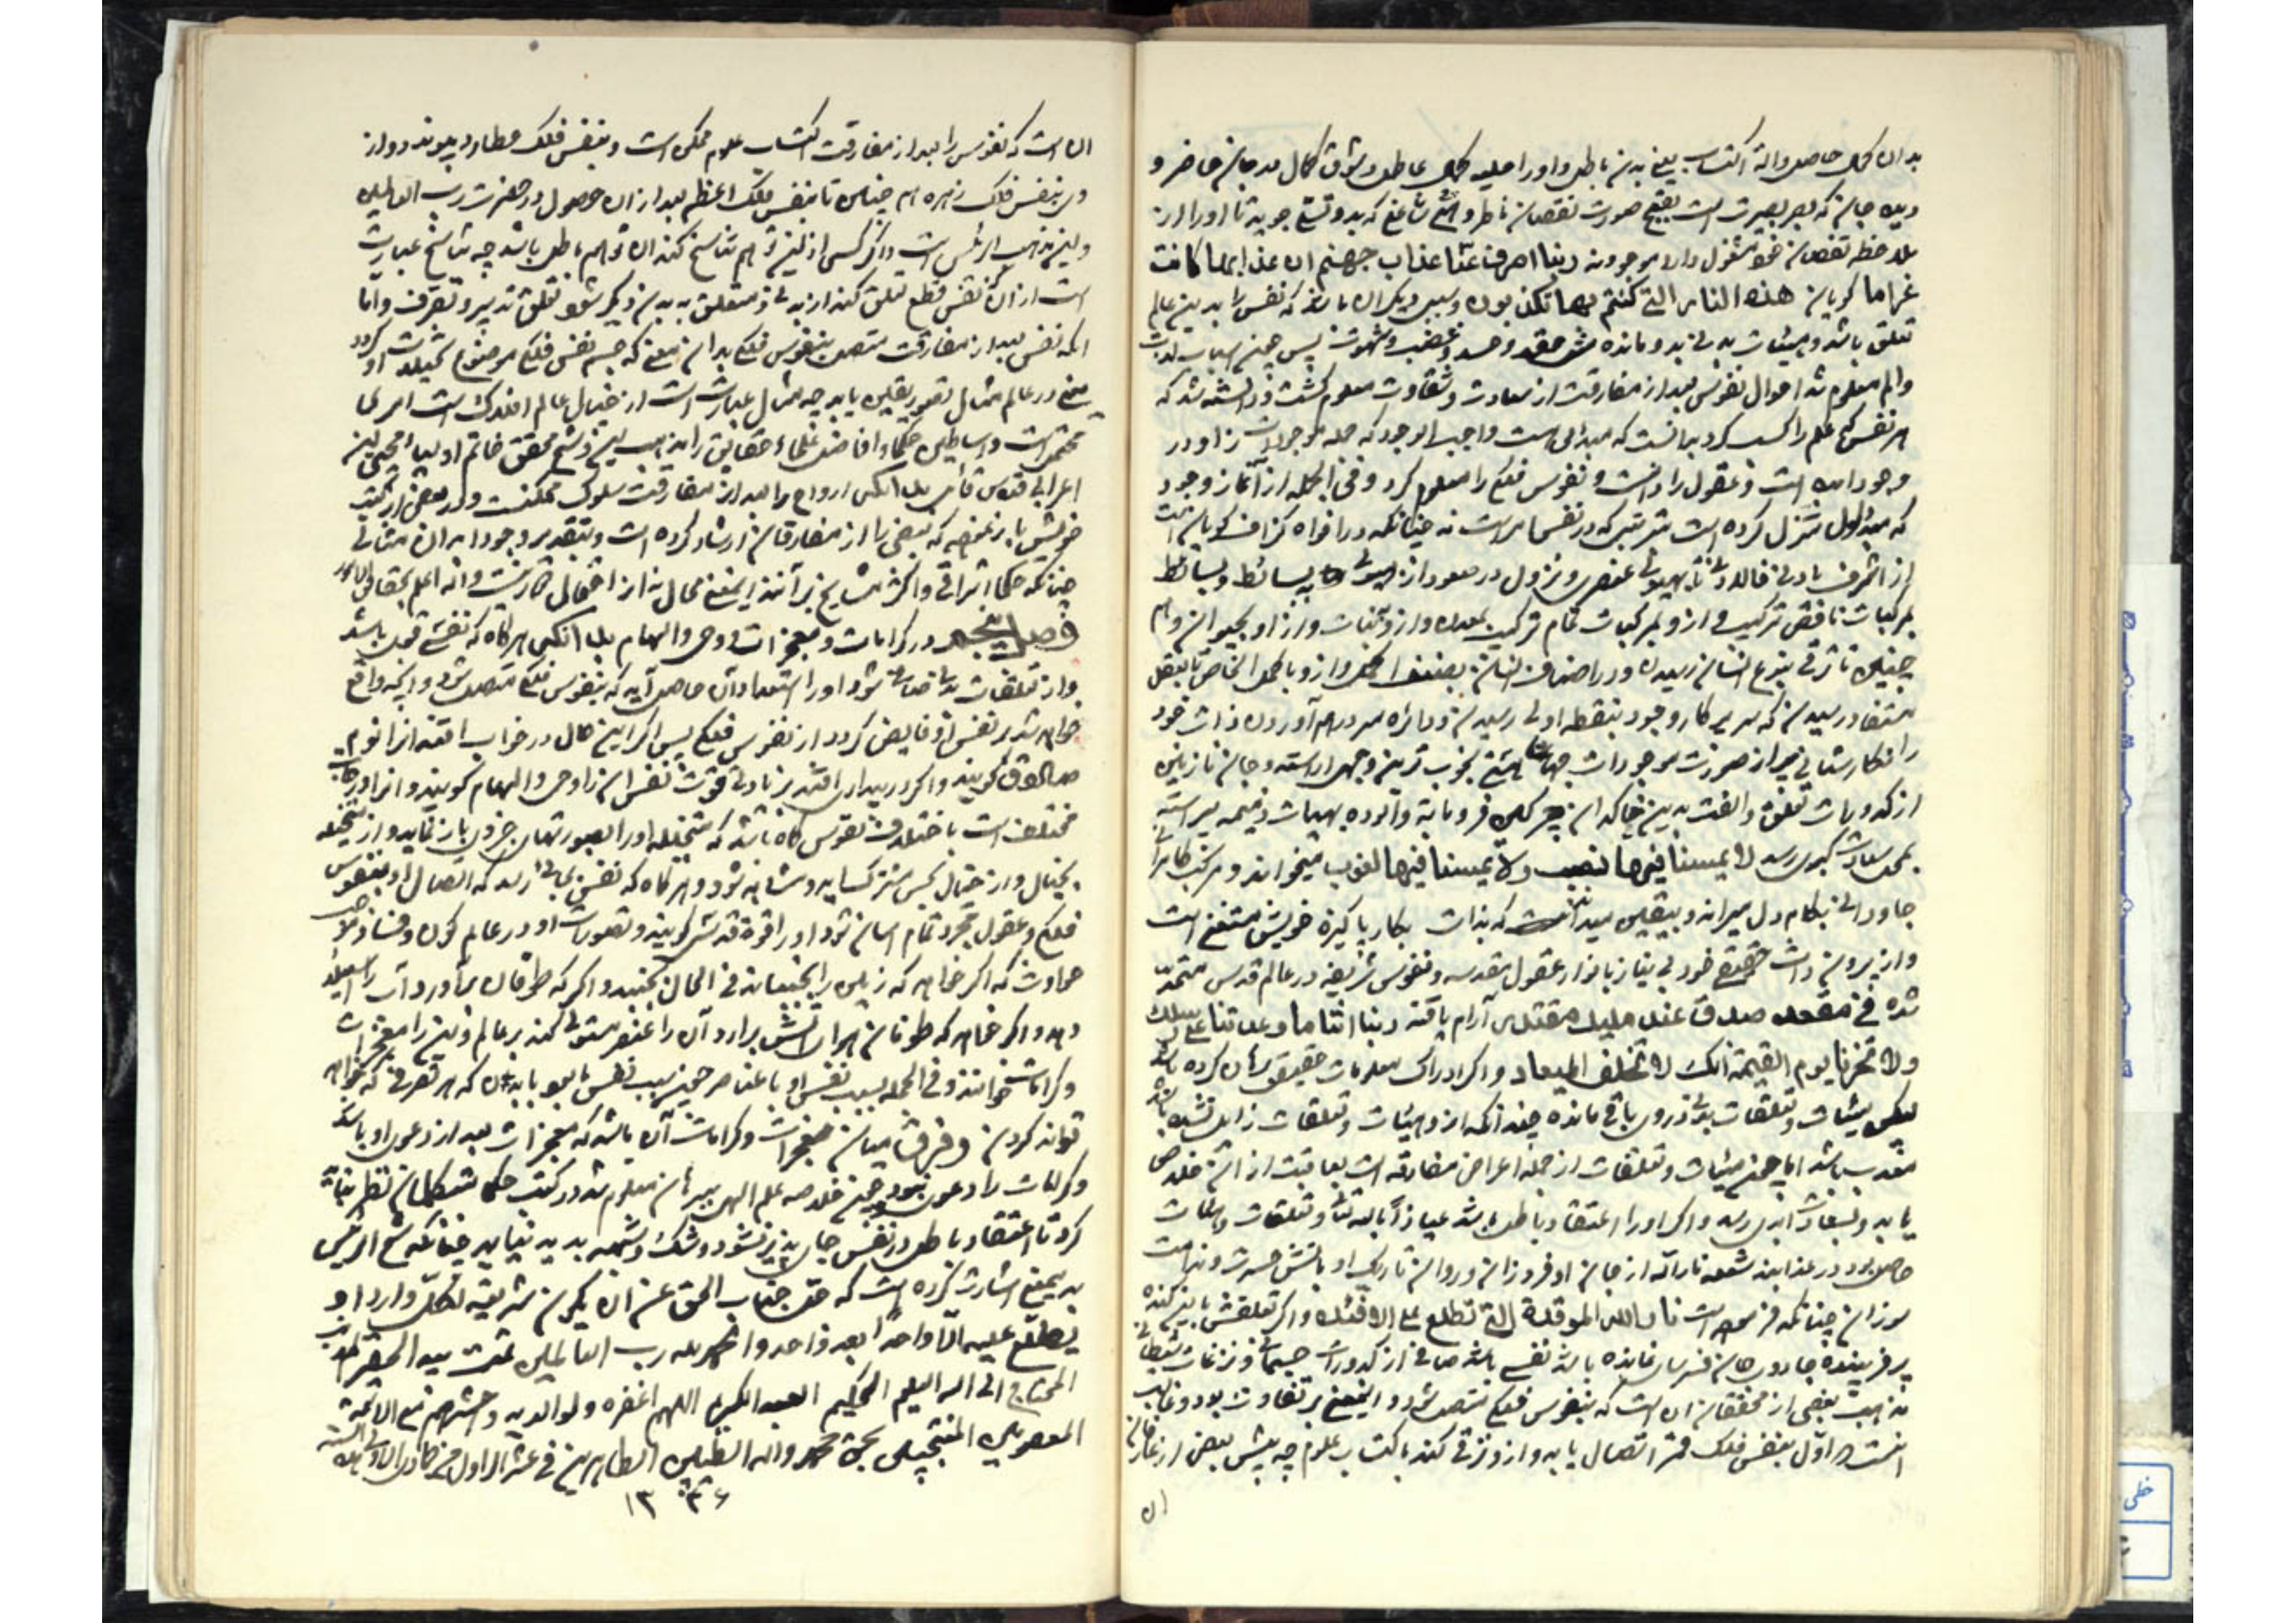 بدان کمال حاصل و آلة اکتساب یعنی بدن باطل و اورا حلیه کمال عاطل و شوق کمال در جان حاضر و
دیده جان که بصر بصیرت است بقبح صورت نقصان ناظر
ملاحظه نقصان خود مشغول دارد موجود نه ربنا اصرف عنا عذاب جهنم ان عذابها کانت
غراما کویان هذه النار التی کنتم بها تکذبون و سبب دیگر ان باشد که نفس را بدین عالم
تعلق باشد و هیئات بدنی بدو مانده مثل حقد و حسد و غضب و شهوت پس چنین
والم معلوم شد احوال نفوس بعد از مفارقت از سعادت و شقاوت معلوم گشت و دانسته شد که
هر نفس که علم را کسب کرد بدانست که مبدا اول است واجب الوجود که جمله موجودات از او در
وجود آمده است و عقول را دانست و نفوس فلکی را معلوم کرد و فی الجمله از آغاز وجود
که مبدا اول تنزل کرده است بترتیبی که در نفس الامر است نه چنانکه در افواه گزاف کویان است
از اشرف بادنی فالادنی تا بهیولی عنصری و نزول در صعود از هیولی به بسائط و بسائط
بمرکبات ناقص ترکیب و از و بمرکبات تمام ترکیب بمعدن و از و بنبات و از او بحیوان و هم
چنین تا ترقی بنوع انسان رسیدن و در اصناف انسان بصنف اکمل و از و باکمل اشخاص تا بعقل
مستفاد رسیدن که سریر کار وجود بنقطه اولی رسیدن و دائره سر درهم آوردن ذات خود
را
از کدورات تعلق و الفت بدین خاکدان
بمحل سعادت کبری رسد لا یمسنا فیها نصب ولا یمسنا فیها لغوب میخواند و مرکب کامرانی
جاودانی بکام دل میراند و بیقین میداند که بذات بکار پاکیزه خویش منتفع است
و از بیرون ذات حقیقی خود بی نیاز بانوار عقول مقدسه و نفوس شریفه در عالم قدس متحد
شده فی مقعد صدق عند ملیک مقتدر آرام یافته ربنا اتنا ما وعدتنا علی رسلک
ولا تخزنا یوم القیمة انک لا تخلف المیعاد و اگر ادراک معلومات حقیقی کرده باشد
لیکن هیئات و تعلقات بدنی درو باقی مانده چندانکه از و هیئات و تعلقات زایل نشده باشد
معذب باشد اما چون هیئات و تعلقات از جمله اعراض مفارقه است بعاقبت از ان خلاص
یابد و بسعادت ابدی رسد و اگر اورا اعتقاد باطل باشد عیاذا بالله تعالی و تعلقات و ملکات
حاصل بود در عذاب بند شعله نار الله از جان او فروزان و روان تاریک او باتش حسرت و ندامت
سوزان چنانکه فرموده است نار الله الموقدة التی تطلع علی الافئدة و اگر تعلقش
باشد نفسی باشد صافی از کدورات جسمانی و نزغات شیطانی
مذهب بعضی از محققان ان است که بنفوس فلکی متصل شود و اینمعنی بر تفاوت بود و غالب
انست که اول بنفس فلک قمر اتصال یابد و از و ترقی کند باکتساب علوم چه پیش بعضی از
ان
ان است که نفوس را بعد از مفارقت اکتساب علوم ممکن است و بنفس فلک عطارد پیوندد و از
وی بنفس فلک زهره هم چنین تا بنفس فلک اعظم بعد از ان حصول در حضرت رب العالمین
و این مذهب ارئیس است و اگر کسی از این توهم تناسخ کند ان توهم باطل باشد چه تناسخ عبارت
است از ان که نفس قطع تعلق کند از بدنی و متعلق به بدن دیگر شود تعلق تدبیر و تصرف و اما
انکه نفس بعد از مفارقت متصل بنفوس فلکی بدان معنی که جسم نفس فلکی موضوع تخیلات او گردد
یعنی در عالم مثال تصور یقین باید چه مثال عبارت است از خیال عالم افلاک است امری
محقق است و اساطین حکما و افاضل علماء حقایق را مذهب این و شیخ محقق خاتم اولیا محیی الدین
اعرابی قدس قائل بدانکه ارواح را بعد از مفارقت سلوک ممکنست و در بعضی از کتب
خویش باز نموده که بعضی را از مفارقان ارشاد کرده است
چنانکه حکماء اشراقی و اکثر مشایخ برآنند اینمعنی محال نه از اشکال دور است و الله اعلم بحقایق الامور
فصل پنجم در کرامات و معجزات و وحی و الهام بدانکه هرگاه که نفس قوی باشد
و از تعلقات بدنی صافی شود اورا استعداد آن حاصل آید که بنفوس فلکی متصل شود و انچه واقع
خواهد شد بر نفس او فایض گردد از نفوس فلکی پس اگر این حال در خواب افتد انرا نوم
صادق گویند و اگر در بیداری افتد بزیادتی قوت نفس ان را وحی و الهام کویند و انرا
مختلف است باختلاف نفوس گاه باشد که متخیله اورا بصورتهای جزوی باز نماید و از متخیله
بخیال و از خیال بحس مشترک آید و مشاهد شود و هرگاه که نفس بجائی رسد که اتصال او بنفوس
فلکی و عقول مجرد تمام اسان شود اورا قوة قدسی کویند و تصورات او در عالم کون و فساد
حادث که اگر خواهد که زمین را بجنباند فی الحال بجنبد و اگر که طوفان برآورد آب را استیلا
دهد و اگر خواهد که طوفان هوا و آتش برآرد آن را عنصر مستولی کند بر عالم و این را معجزات
و کرامات خوانند و فی الجمله نسبت نفس او با عناصر چون نسبت نفس ما بود با بدن که هر تصرفی که خواهد
تواند کردن و فرق میان معجزات و کرامات آن باشد که معجزات بعد از دعوی او باشد
و کرامات را دعوی نبود چون خلاصه علم الهی ببرهان معلوم شد در کتب حکما و متکلمان نظر نباید
کرد تا اعتقاد باطل در نفس جای پذیر نشود و شک و شبهه پدید نیاید چنانکه شیخ الرئیس
بدینمعنی اشارت کرده است که جل جناب الحق عن ان یکون شریعة لکل وارد او
یطلع علیه الا واحدا بعد واحد والحمد لله رب العالمین تمت بید الحقیر
المحتاج الی الله العلیم الحکیم العبد الکریم اللهم اغفره ولوالدیه واحشرهم مع الائمة
المعصومین المنتجبین بحق محمد واله الطیبین الطاهرین فی عشر الاول من جمادی الاولی من السنة
۱۳۳۶
خطی